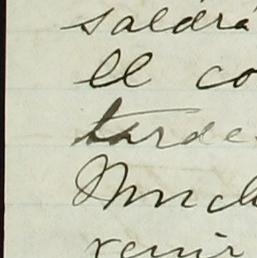 saldrá
ll co
tarde
Much
venir